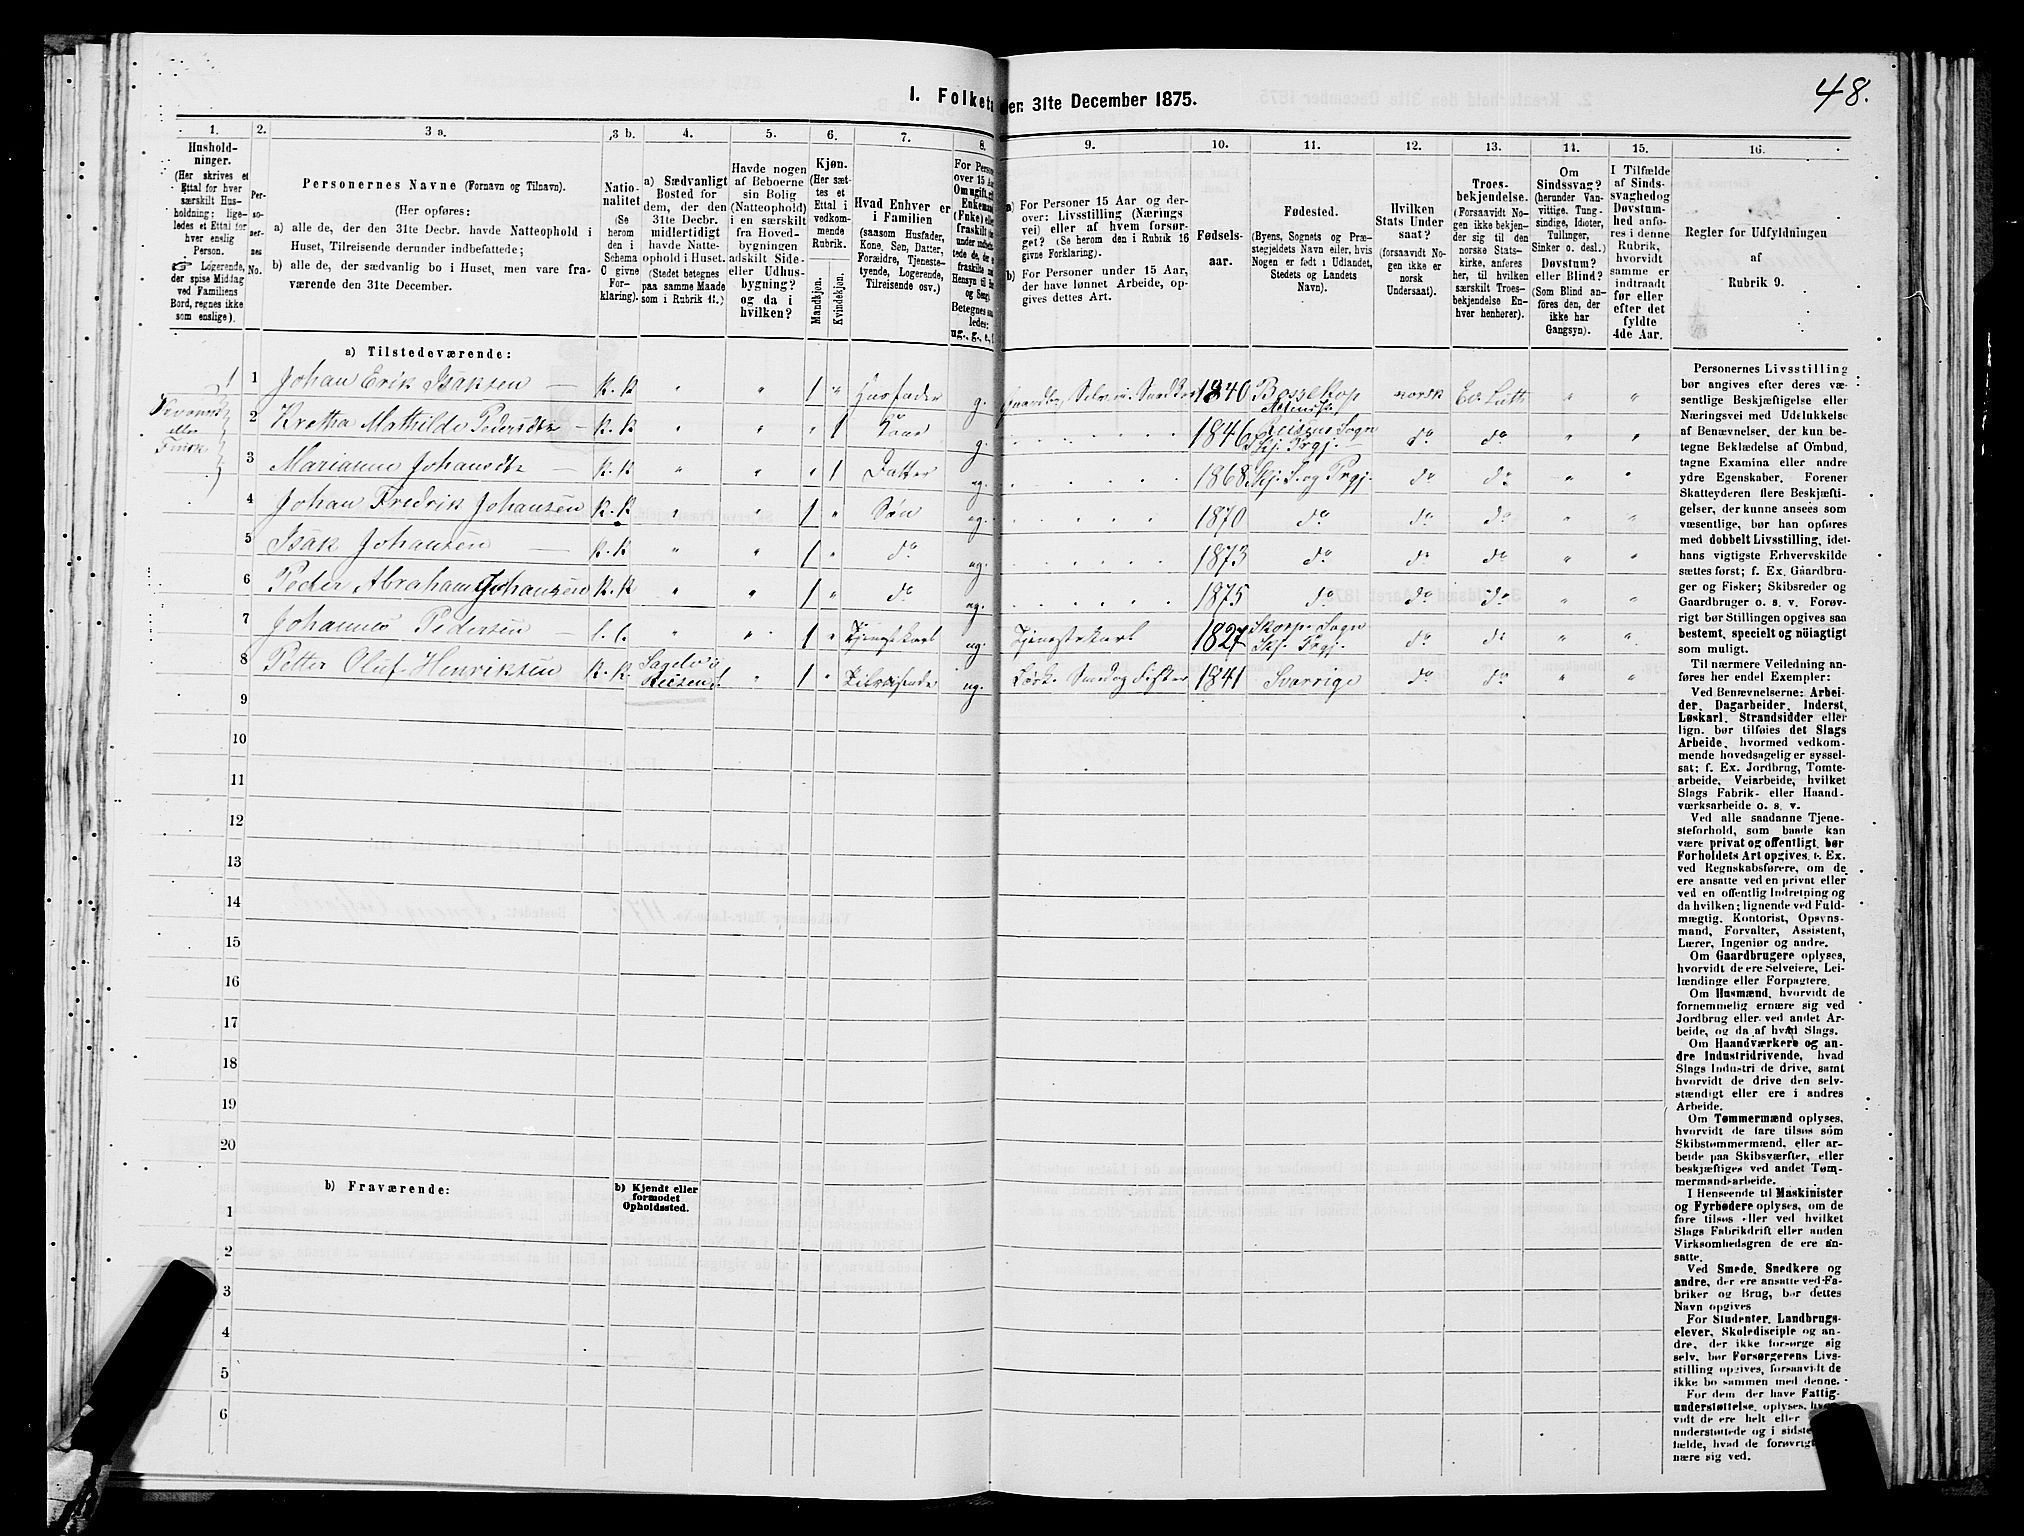 48.
I. Folketæ
den 31te December 1875.
1.
2.
3 a.
3 b.
4.
5.
6.
7.
8.
9.
10.
11.
12.
13.
14.
15.
16.
Hushold-
ninger.
(Her skrives et
Ettal for hver
særskilt Hus-
holdning; lige-
ledes et Ettal for
hver enslig
Person.
☞ Logerende,
der spise Middag
ved Familiens
Bord, regnes ikke
som enslige).
Per-
so-
ner-
nes
No.
Personernes Navne (Fornavn og Tilnavn).
(Her opføres:
a) alle de, der den 31te Decbr. havde Natteophold i
Huset, Tilreisende derunder indbefattede;
b) alle de, der sædvanlig bo i Huset, men vare fra-
værende den 31te December.
Natio-
nalitet
(Se
herom
den i
Schema
O givne
For-
klaring).
a) Sædvanligt
Bosted for
dem, der den
31te Decbr.
midlertidigt
havde Natte-
ophold i Huset.
(Stedet betegnes
paa samme Maade
som i Rubrik 11.)
Havde nogen
af Beboerne
sin Bolig
(Natteophold)
i en særskilt
fra Hoved-
bygningen
adskilt Side-
eller Udhus-
bygning?
og da i
hvilken?
Kjøn.
(Her sæt-
tes et
Ettal i
vedkom-
mende
Rubrik.
Mandkjøn.
Kvindekjøn.
Hvad Enhver er
i Familien
(saasom Husfader,
Kone, Søn, Datter,
Forældre, Tjeneste-
tyende, Logerende,
Tilreisende osv.)
For Perso
over 15 Aa
Om ugift, gi
Enkeman
(Fke) eller
fraskilt
Betegnes saa
ledes:
ug., g., e., f.
a) For Personer 15 Aar og der-
over: Livsstilling (Nærings
vei) eller af hvem forsør-
get? (Se herom den i Rubrik 16
givne Forklaring).
b) For Personer under 15 Aar,
der have lønnet Arbeide, op-
gives dettes Art.
Fødsels-
aar.
Fødested.
(Byens, Sognets og Præ-
stegjeldets Navn eller, hvis
Nogen er født i Udlandet,
Stedets og Landets
Navn).
Hvilken
Stats Under
saat?
(forsaavidt No-
gen ikke er
norsk
Undersaat).
Troes-
bekjendelse.
(Forsaavidt No-
gen ikke bekjen-
der sig til den
norske Stats-
kirke, anføres
her, til hvilken
særskilt Troes-
bekjendelse En-
hver henhører).
Om
Sindssvag?
(herunder Van-
vittige, Tung-
sindige, Idioter,
Tullinger,
Sinker o. desl.)
Døvstum?
eller Blind?
(Som Blind an-
føres den, der
ikke har
Gangsyn).
I Tilfælde
af Sinds-
svaghed og
Døvstum-
hed anfø-
res i denne
Rubrik,
hvorvidt
samme er
indtraadt
før eller
efter det
fyldte
4de Aar.
Regler for Udfyldningen
af
Rubrik 9.
a) Tilstedeværende:
1 1 Johan Erik Isaksen — K. K " " 1 " Husfader g. Gaardbr. Selvei. 1840 Bossekop norsk Ev. Luth " "
2 Kretha Mathilde Pedersdtr K. K " " " 1 Kone g. 1846 Sogn Skj. Prgj. do do " "
3 Marianne Johansdtr K. K " " " 1 Datter ug. 1868 Skj. S. og Prgj. do do " "
4 Johan Fredrik Johansen K. K " " 1 " Søn ug. 1870 do do do " "
5 Isak Johansen — K. K " " 1 " do ug. 1873 do do do " "
6 Peder Abraham Johansen K. K " " 1 " do ug. 1875 do do do " "
7 Johannes Pedersen — l. l. " " 1 " Tjenestekarl ug. Tjenestekarl 1827 Skorpe Sogn Skj. Prgj. do do " "
8 Petter Oluf Henriksen K. K. " 1 " Tilreisende ug. Løsk. Smed og Fisker 1841 Sverrige do do " "
eller
Finsk
9
10
11
12
13
14
15
16
17
18
19
20
b) Fraværende:
b) Kjendt eller
formodet
Opholdssted.
1
2
3
4
5
6
Personernes Livsstilling
bør angives efter deres væ-
sentlige Beskjæftigelse eller
Næringsvei med Udelukkelse
af Benævnelser, der kun be-
tegne Beklædelse af Ombud,
tagne Examina eller andre
ydre Egenskaber. Forener
Skatteyderen flere Beskjæfti-
gelser, der kunne ansees som
væsentlige, bør han opføres
med dobbelt Livsstilling, idet-
hans vigtigste Erhvervskilde
sættes først; f. Ex. Gaardbru-
ger og Fisker; Skibsreder og
Gaardbruger o. s. v. Forøv-
rigt bør Stillingen opgives saa
bestemt, specielt og nøiagtigt
som muligt.
Til nærmere Veiledning an-
føres her endel Exempler:
Ved Benævnelserne: Arbei-
der, Dagarbeider, Inderst,
Løskarl, Strandsidder eller
lign. bør tilføies det Slags
Arbeide, hvormed vedkom-
mende hovedsagelig er syssel-
sat; f. Ex. Jordbrug, Tomte-
arbeide, Veiarbeide, hvilket
Slags Fabrik- eller Haand-
værksarbeide o. s. v.
Ved alle saadanne Tjene-
steforhold, som baade kan
være privat og offentligt, bør
Forholdets Art opgives, f. Ex.
ved Regnskabsførere, om de
ere ansatte ved en privat eller
ved en offentlig Indretning og
da hvilken; lignende ved Fuld-
mægtig, Kontorist, Opsyns-
mand, Forvalter, Assistent,
Lærer, Ingeniør og andre.
Om Gaardbrugere oplyses,
hvorvidt de ere Selveiere, Lei-
lændinge eller Forpagtere.
Om Husmænd, hvorvidt de
fornemmelig ernære sig ved
Jordbrug eller ved andet Ar-
beide, og da af hvad Slags.
Om Haandværkere og an-
dre Industridrivende, hvad
Slags Industri de drive, samt
hvorvidt de drive den selv-
stændigt eller ere i andres
Arbeide.
Om Tømmermænd oplyses,
hvorvidt de fare tilsøs som
Skibstømmermænd, eller ar-
beide paa Skibsværfter, eller
beskjæftiges ved andet Tøm-
mermandsarbeide.
I Henseende til Maskinister
og Fyrbødere oplyses, om de
fare tilsøs eller ved hvilket
Slags Fabrikdrift eller anden
Virksomhedsgren de ere an-
satte.
Ved Smede, Snedkere og
andre, der ere ansatte ved Fa-
briker og Brug, bør dettes
Navn opgives
For Studenter, Landbrugs-
elever, Skoledisciple og an-
dre, der ikke forsørge sig
selv, bør Forsørgerens Livs-
stilling opgives, forsaavidt de
ikke bo sammen med denne.
For dem der have Fattig-
understøttelse, oplyses, hvor-
vidt de ere helt eller
understøttede og i sidste
fælde, hvad de forøvrigt
nære sig ved.